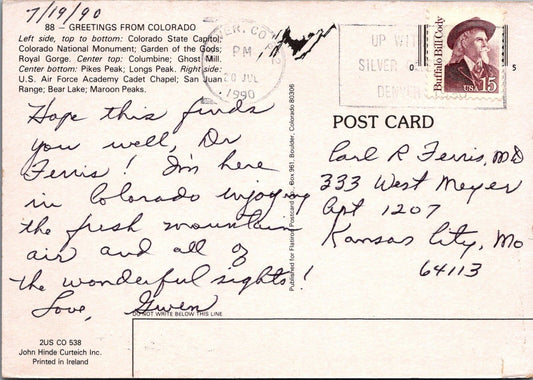 7/19/90
88 – GREETINGS FROM COLORADO
Left side, top to bottom: Colorado State Capitol;
Colorado National Monument; Garden of the Gods;
Royal Gorge. Center top: Columbine; Ghost Mill.
Center bottom: Pikes Peak; Longs Peak. Right side:
U.S. Air Force Academy Cadet Chapel; San Juan
Range; Bear Lake; Maroon Peaks.
Hope this finds
you well, Dr
Ferris! I'm here
in Colorado enjoying
the fresh mountain
air and all of
the wonderful sights!
Love, Gwen
2US CO 538
John Hinde Curteich Inc.
Printed in Ireland
DO NOT WRITE BELOW THIS LINE
Published for Flatiron Postcard Box 961, Boulder, Colorado 80306
CO
PM
20 JUL
1990
UP WIT
SILVER
DENVER
Buffalo Bill Cody
USA 15
0 5
POST CARD
Carl R Ferris, MD
333 West Meyer
Apt 1207
Kansas City, Mo
64113